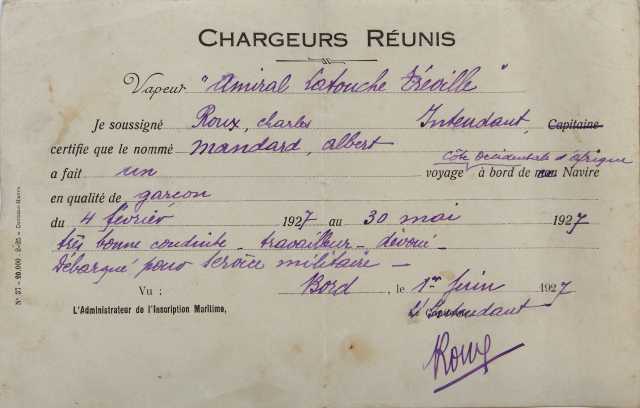 CHARGEURS RÉUNIS
Vapeur "Amiral Latouche Tréville"
Je soussigné Roux, Charles Intendant, Capitaine
certifie que le nommé Mandard, Albert
Côte Occidentale d'Afrique
a fait un voyage à bord de mon Navire
en qualité de garçon
du 4 février 1927 au 30 mai 1927
très bonne conduite - travailleur - dévoué -
Débarqué pour service militaire -
Vu : Bord, le 1er Juin 1927
L'Administrateur de l'Inscription Maritime, L'Intendant
Roux